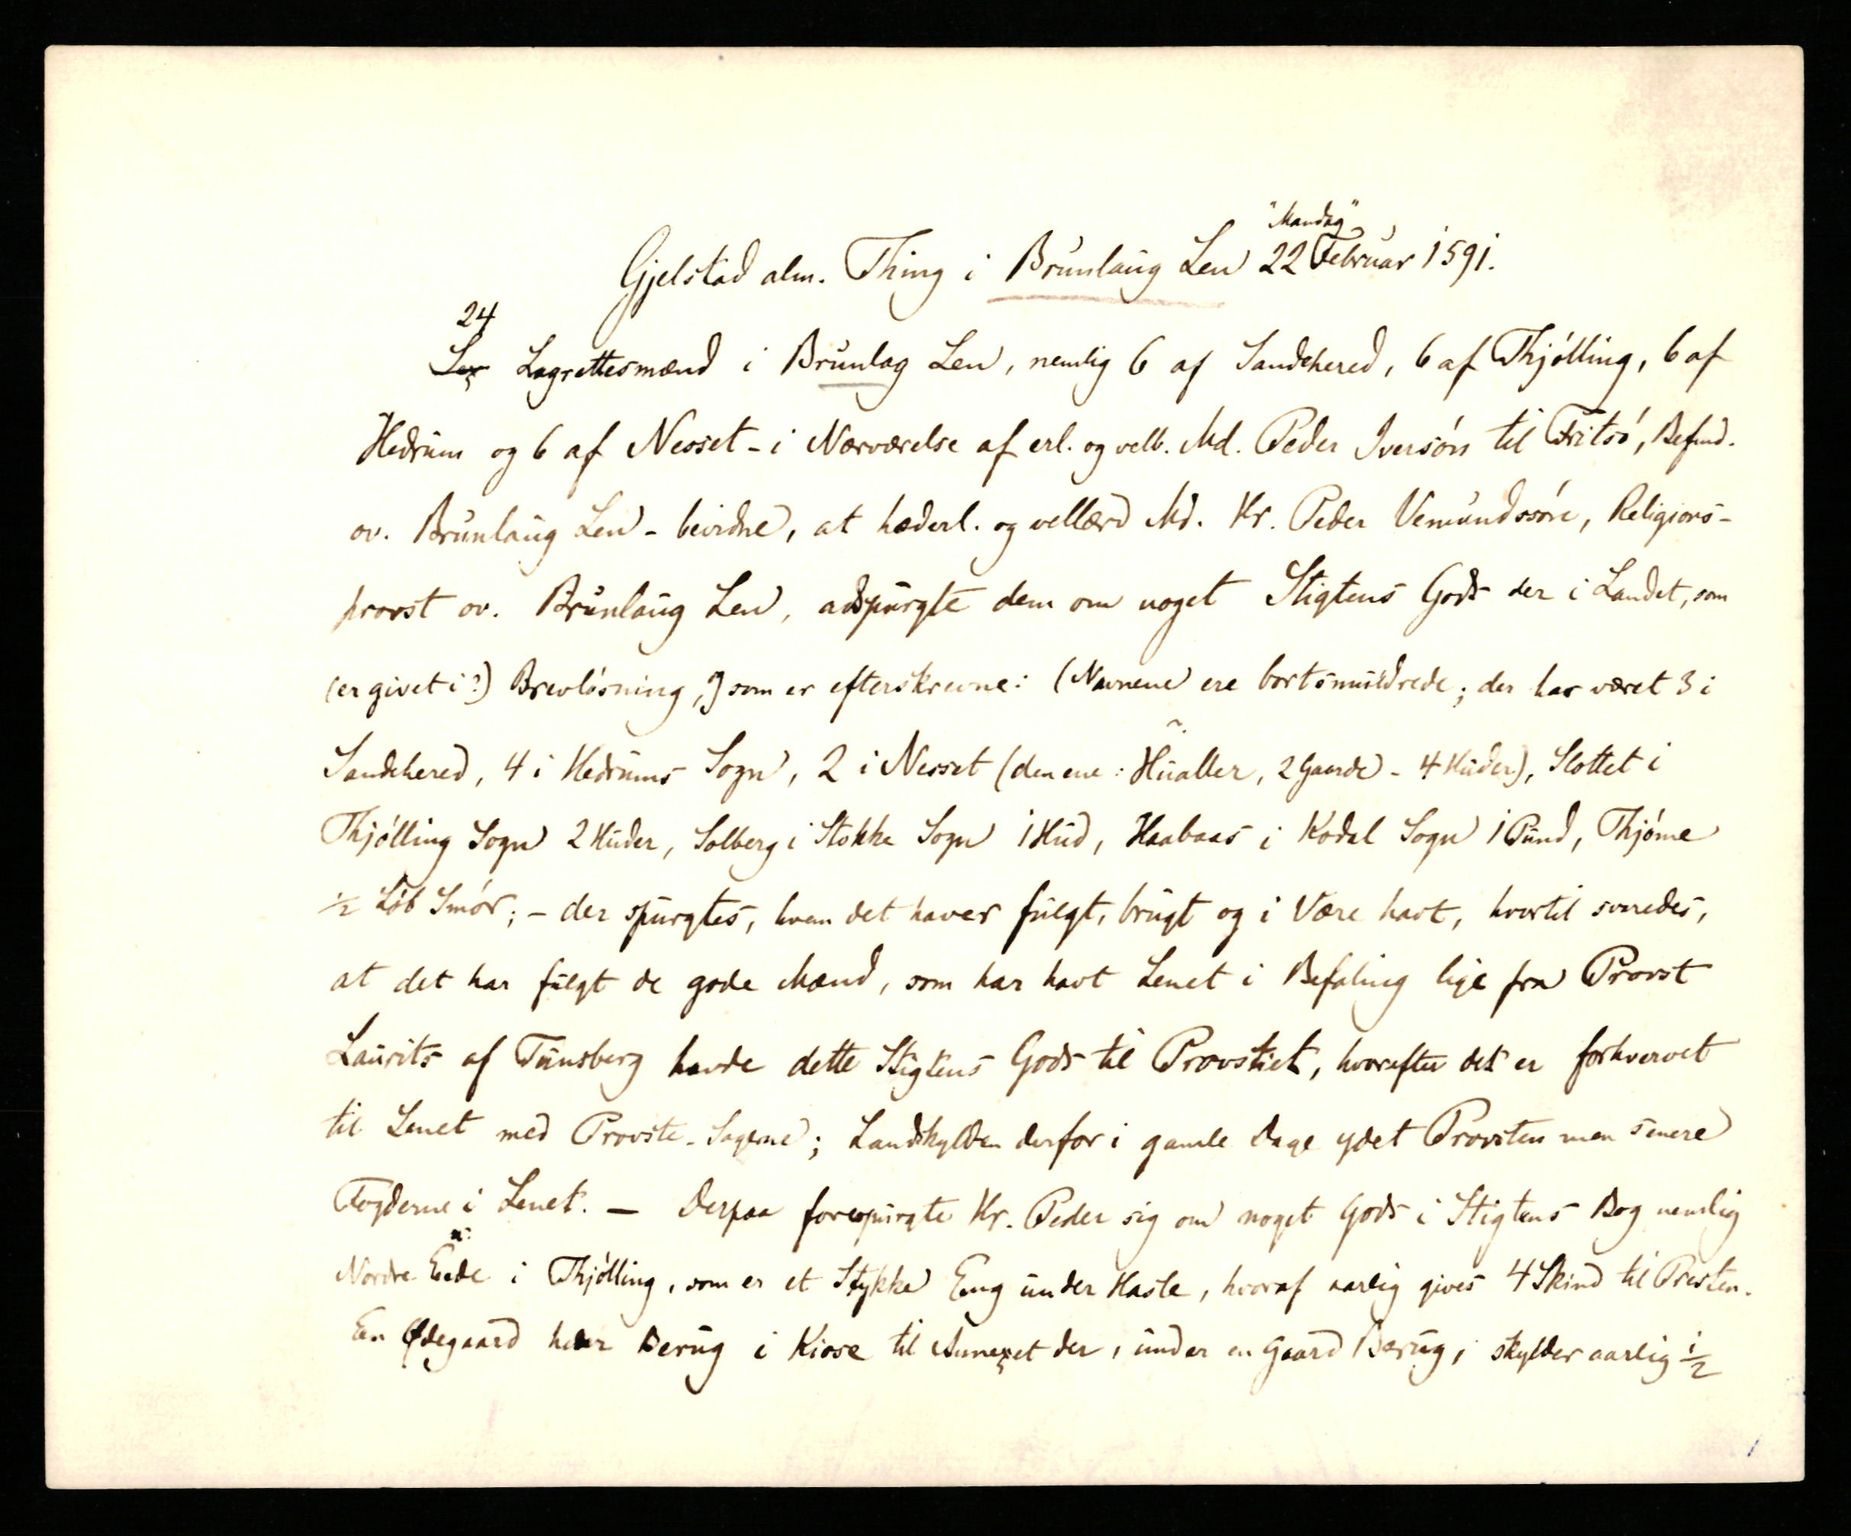 "Mandag"
Gjelstad alm. Thing i Brunlaug Len 22 Februar 1591.
24
Sex Lagrettesmænd i Brunlag Len, nemlig 6 af Sandehered, 6 af Thjølling, 6 af
Hedrum og 6 af Nesset - i Nærværelse af erl. og velb. Md. Peder Iversøn til Fritsø, Befmd.
ov. Brunlaug Len - bevidne, at hæderl. og vellærd Md. Hr. Peder Vemundssøn, Religions-
provst ov. Brunlaug Len, adspurgte dem om noget Stigtens Gods der i Landet, som
(er givet i?) Brevløsning, som er efterskrevne: (Navnene ere bortsmuldrede; der har været 3 i
Sandehered, 4 i Hedrums Sogn, 2 i Nesset (den ene: Hualler, 2 Gaarde - 4 Huder), Slottet i
Thjølling Sogn 2 Huder, Solberg i Stokke Sogn 1 Hud, Haabaas i Kodal Sogn 1 Pund, Thjøme
1/2 Løb Smør; - der spurgtes, hvem det haver fulgt, brugt og i Være havt, hvortil svaredes,
at det har fulgt de gode Mænd, som har havt Lenet i Befaling lige fra Provst
Laurits af Tunsberg havde dette Stigtens Gods til Provstiet, hvorefter det er forhvervet
til Lenet med Provste-Sagerne; Landskylden derfor i gamle Dage ydet Provsten men senere
Fogderne i Lenet. — Derpaa forespurgte Hr. Peder sig om noget Gods i Stigtens Bog nemlig
Nordre Eede i Thjølling, som er et Stykke Eng under Hasle, hvoraf aarlig gives 4 Skind til Presten.
En Ødegaard heder Berug i Kiose til Annexet der, under en Gaard Berug, skylder aarlig 1/2
1